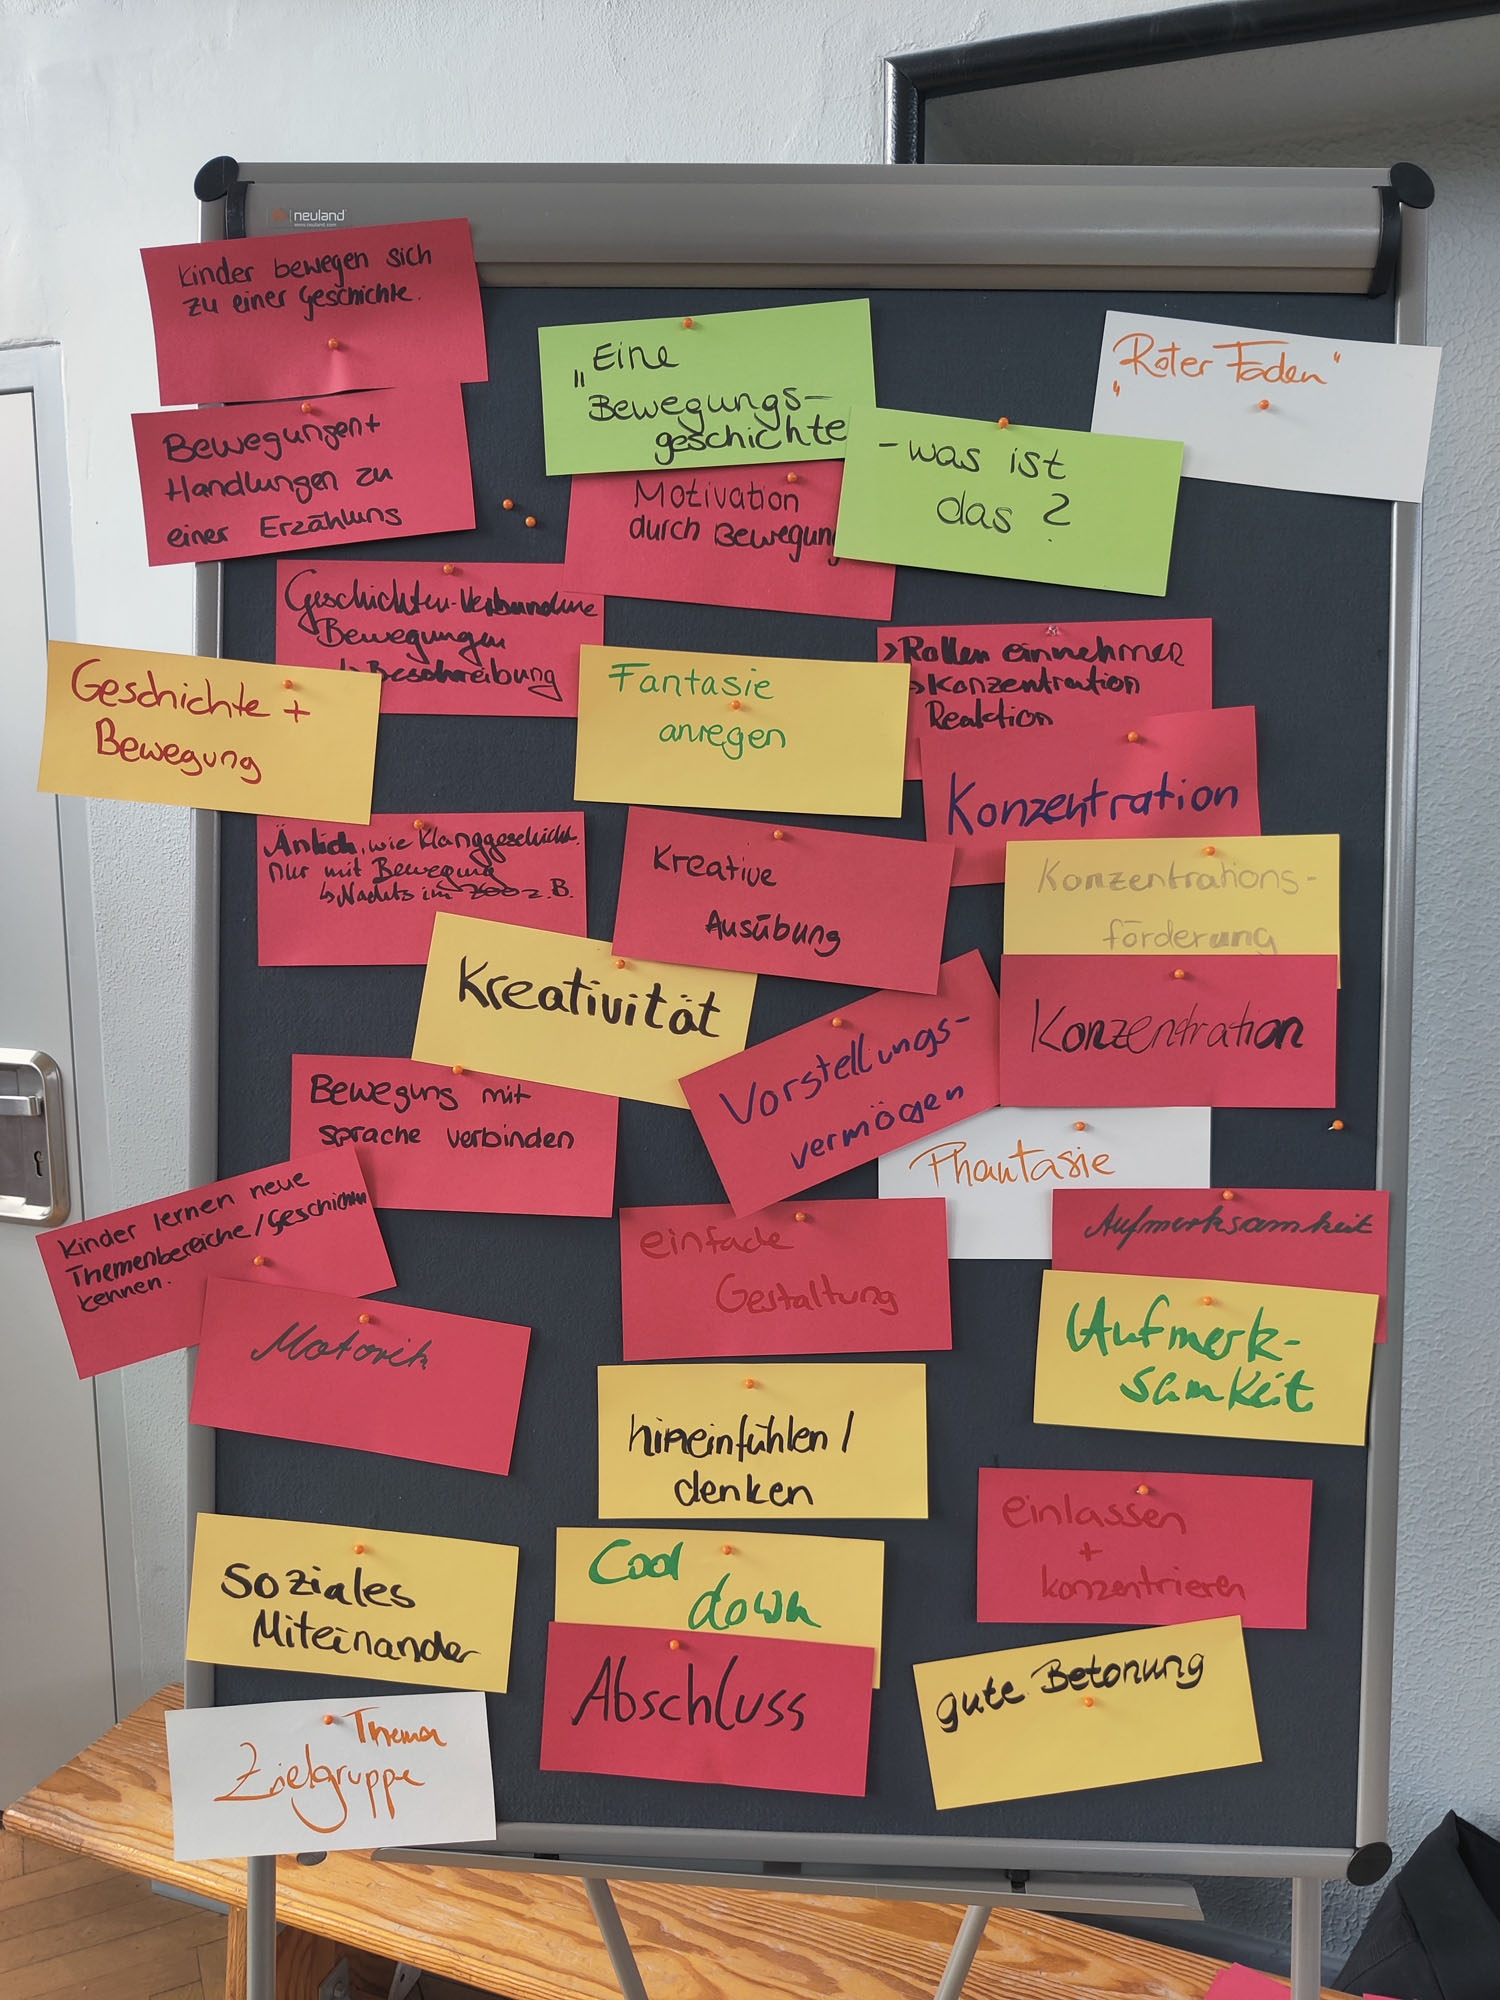 neuland
www.neuland.com
Kinder bewegen sich
zu einer Geschichte.
Bewegungen +
Handlungen zu
einer Erzählung
„Eine
Bewegungs-
geschichte
- was ist
das?
„Roter Faden“
Motivation
durch Bewegung
Geschichten-Verbundene
Bewegungen
↳ Beschreibung
Geschichte +
Bewegung
Fantasie
anregen
> Rollen einnehmen
> Konzentration
Reaktion
Konzentration
Änlich, wie Klanggeschicht.
nur mit Bewegung
↳ Nachts im Zoo z.B.
Kreative
Ausübung
Konzentrations-
förderung
Kreativität
Vorstellungs-
vermögen
Konzentration
Bewegung mit
sprache verbinden
Phantasie
Kinder lernen neue
Themenbereiche/Geschichten
kennen.
einfache
Gestaltung
Aufmerksamkeit
Aufmerk-
samkeit
Motorik
hineinfühlen /
denken
einlassen
+
konzentrieren
soziales
Miteinander
Cool
down
Abschluss
gute Betonung
Thema
Zielgruppe